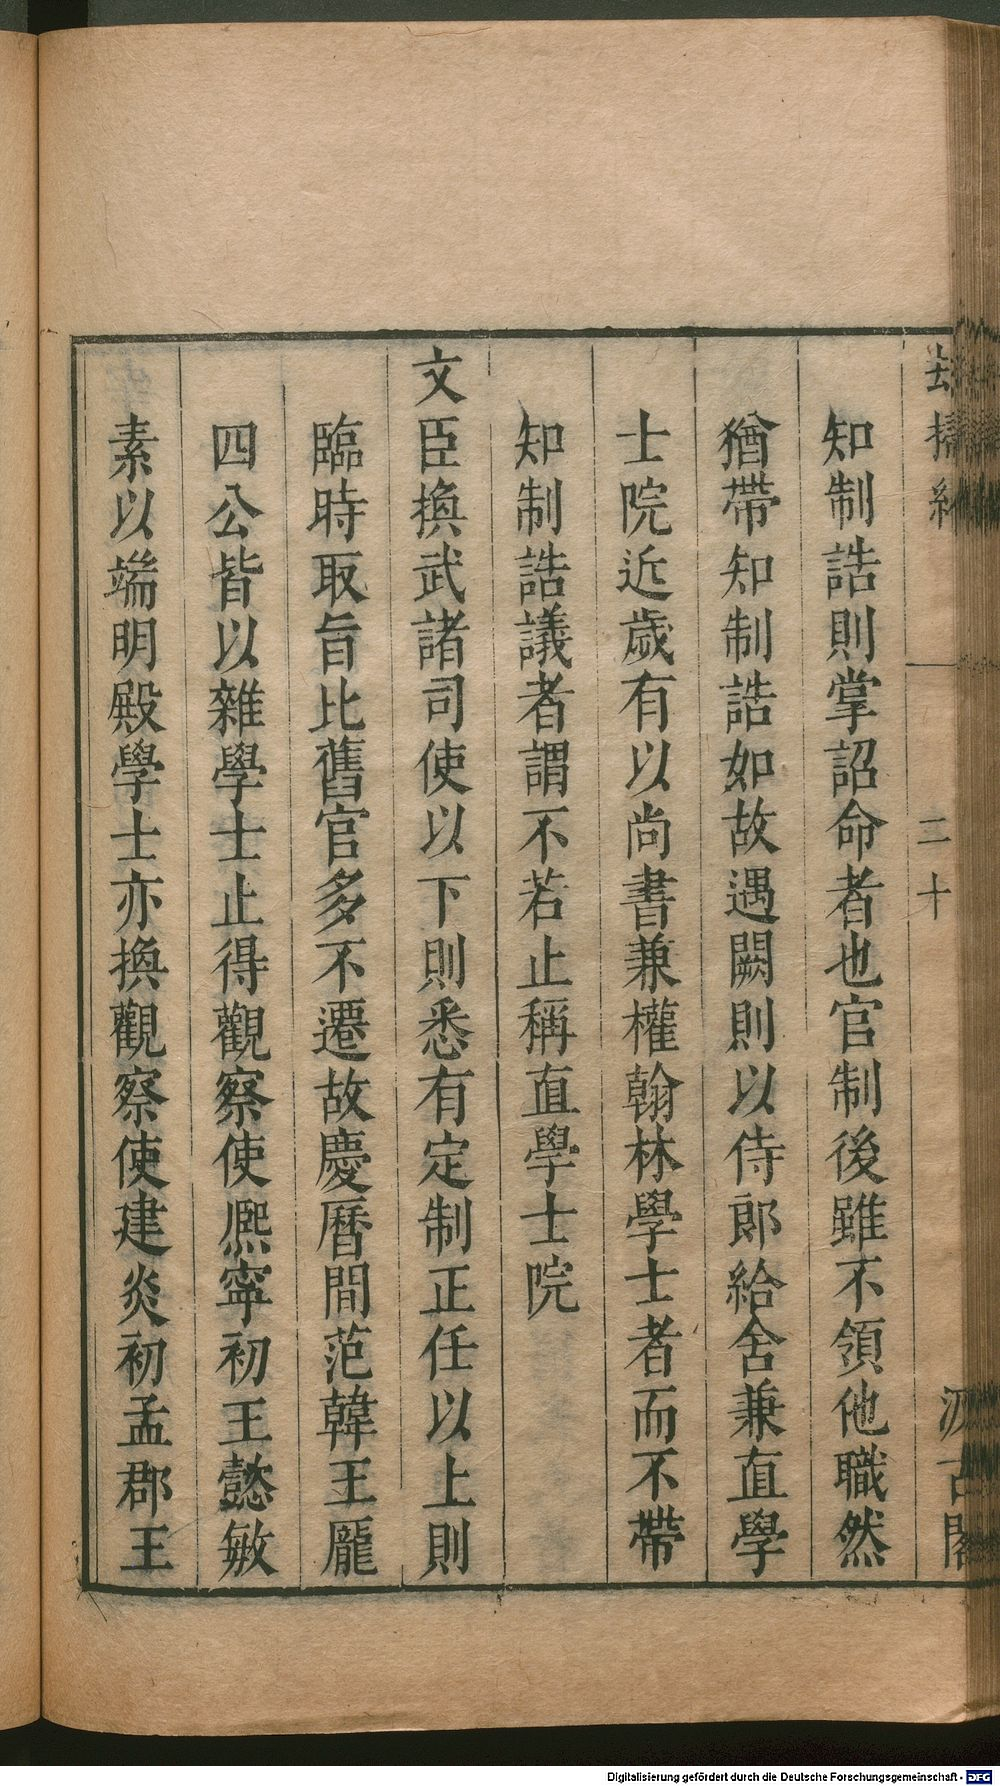 知制誥則掌詔命者也官制後雖不領他職然
猶帶知制誥如故遇闕則以侍郎給舍兼直學
士院近歲有以尚書兼權翰林學士者而不帶
知制誥議者謂不若止稱直學士院
文臣換武諸司使以下則悉有定制正任以上則
臨時取旨比舊官多不遷故慶曆間范韓王龎
四公皆以雜學士止得觀察使熈寧初王懿敏
素以端明殿學士亦換觀察使建炎初孟郡王
二十
汲古閣
Digitalisierung gefördert durch die Deutsche Forschungsgemeinschaft - DFG